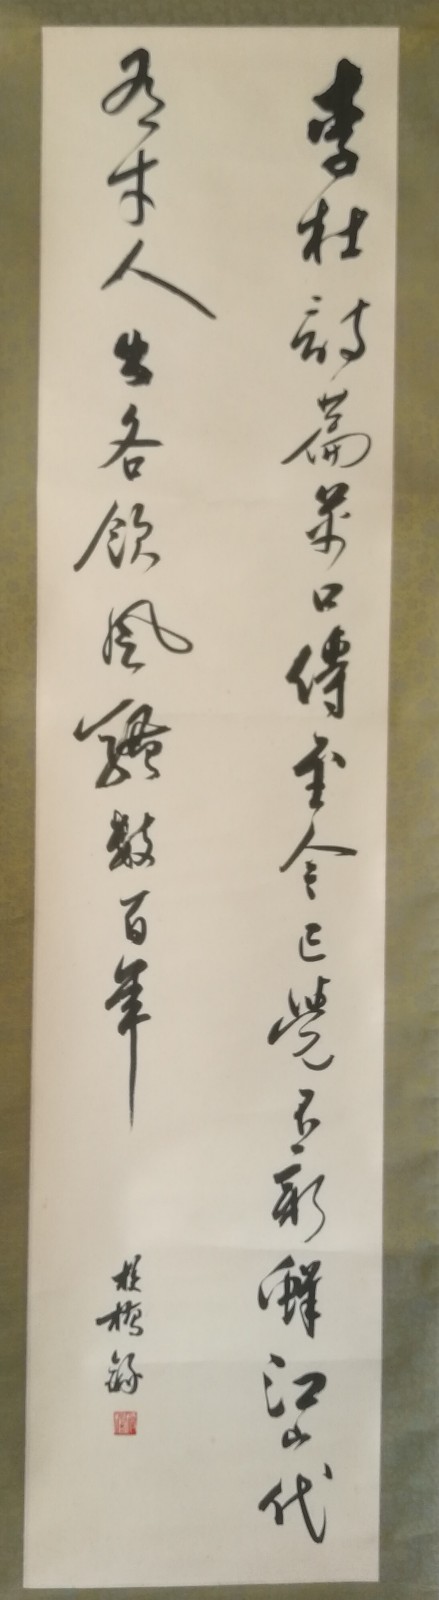 李杜詩篇萬口傳至今已覺不新鮮江山代
有才人出各領風騷數百年
橋錄